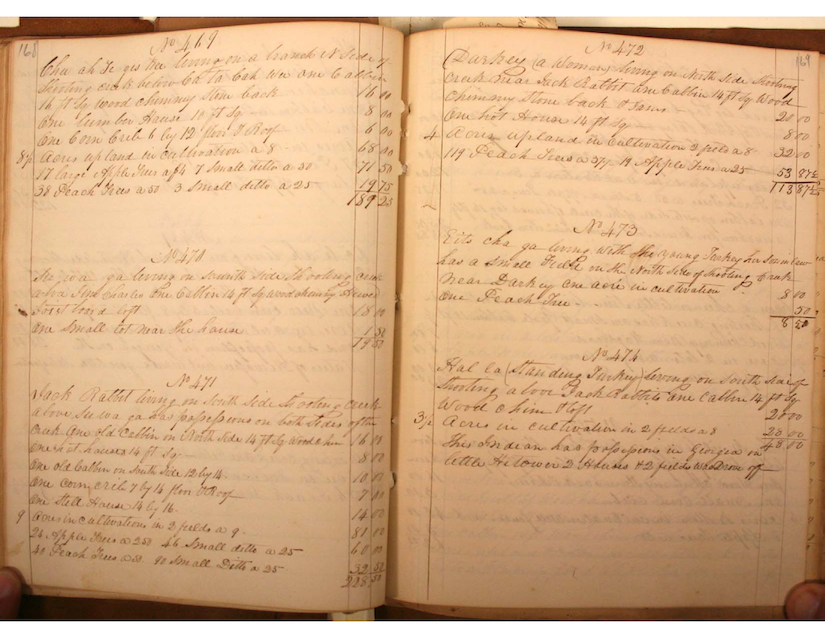 168
No 469
Chu ah le ges kee living on a branch N Side of
Shooting creek below Ca ta Cah wee one Cabbin
16 ft Sq wood chimny Stone back 16 00
One Lumber House 10 ft Sq 8 00
One Corn Crib 6 by 12 floor & Roof 6 00
8½ Acres up land in cultivation a 8 68 00
17 large Apple Trees a $4 7 Small ditto a 50 71 50
38 Peach Trees a 50 3 Small ditto a 25 19 75
189 25
No 470
Su wa ga living on South Side Shooting creek
above one Cabbin 14 ft Sq wood chimny Hewed
Joist loft 18 00
One Small lot near the house 1 50
19 50
No 471
Jack Rabbit living on South Side Shooting creek
above Su wa ga has possessions on both Sides of the
creek One old Cabbin on North Side 14 ft Sq Wood Chim 16 00
One hot house 14 ft Sq 8 00
One old Cabbin on South Side 12 by 14 10 00
One corn crib 7 by 14 floor & Roof 7 00
One Still House 14 by 16 14 00
9 Acres in cultivations in 3 fields a 9 81 00
24 Apple Trees a 2 50 46 Small ditto a 25 60 00
40 Peach Trees a 90 Small Ditto a 25 32 50
228 50
169
No 472
Darkey (a Woman) living on North Side Shooting
Creek near Jack Rabbit one Cabbin 14 ft Sq Wood
Chimmy Stone back & Jams 20 00
One hot House 14 ft Sq 8 00
4 Acres upland in Cultivation 2 fields a 8 32 00
119 Peach Trees a 37½ 19 Apple Trees a 25 53 87½
113 87½
No 473
Eits cha ga living with the young Turkey his Son in law
has a Small Field on the North Side of Shooting Creek
near Darkey one acre in cultivation 8 00
One Peach Tree 50
8 50
No 474
Hal la (Standing Turkey) living on South Side of
Shooting above Jack Rabbits one Cabbin 14 ft Sq
Wood Chim & loft 20 00
3½ Acres in cultivation in 2 fields a 8 28 00
48 00
This Indian has possessions in Georgia on
little Hitower 2 Houses & 2 fields was Drove off